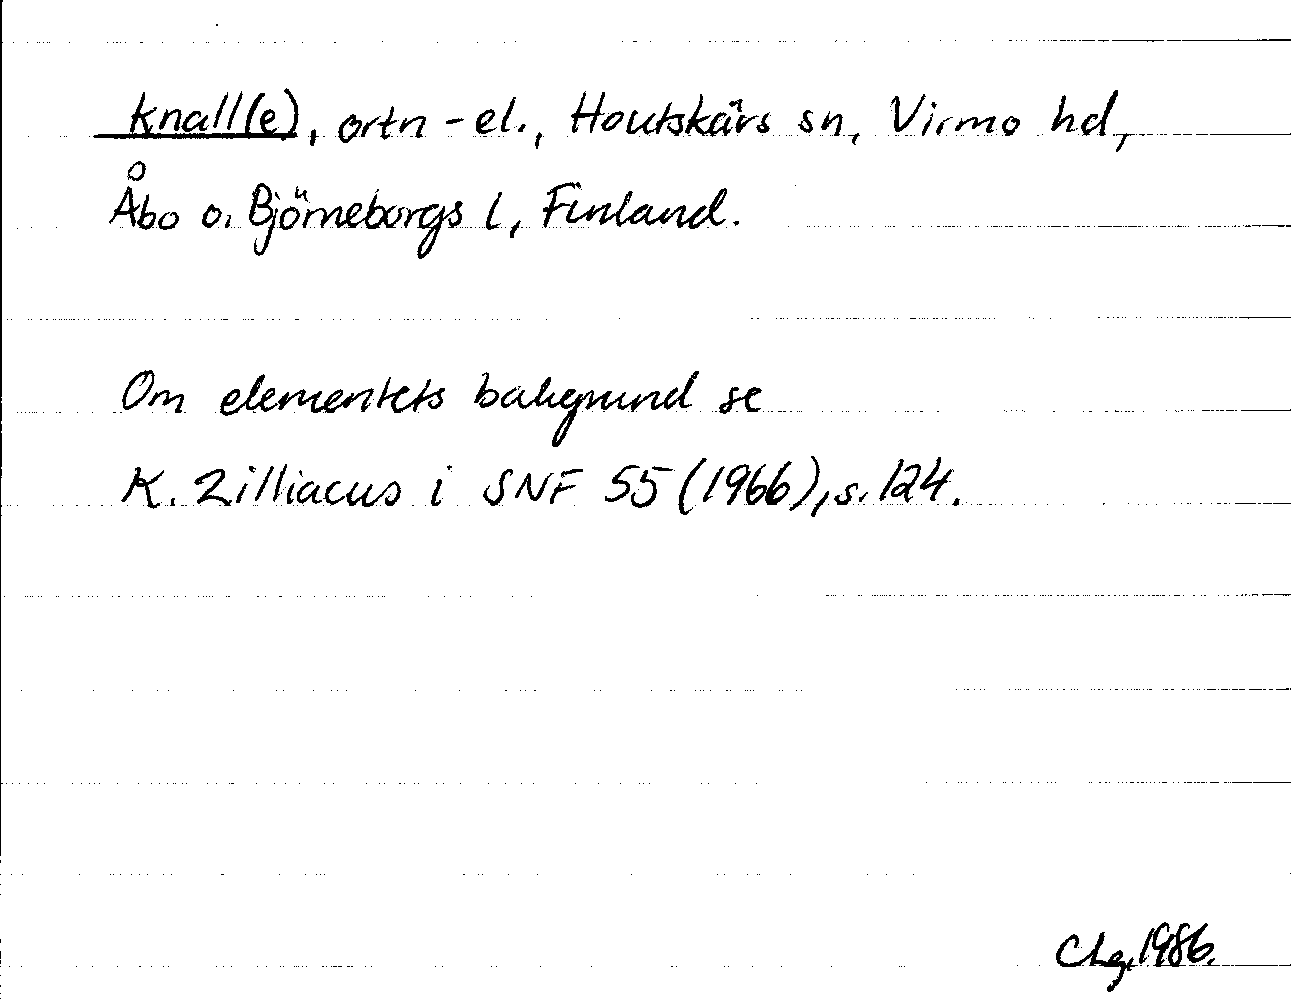 knall(e), ortn-el., Houtskärs sn, Virmo hd,
Åbo o. Björneborgs l, Finland.
Om elementets bakgrund se
K. Zilliacus i SNF 55 (1966), s. 124.
Chg, 1986.